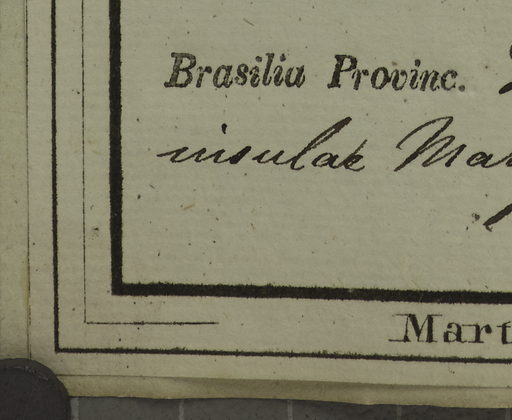 Brasilia Provinc.
insulae Mar
Mart